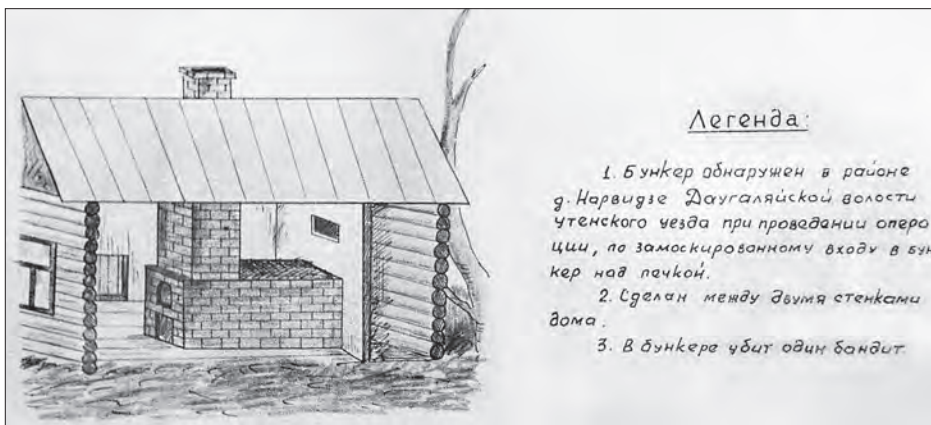 Легенда:
1. Бункер обнаружен в районе
д. Нарвидзе Даугаляйской волости
утенского уезда при проведании опера
ции, по замоскированному входу в бун
кер над печкой.
2. Сделан между двумя стенками
дома.
3. В бункере убит один бандит